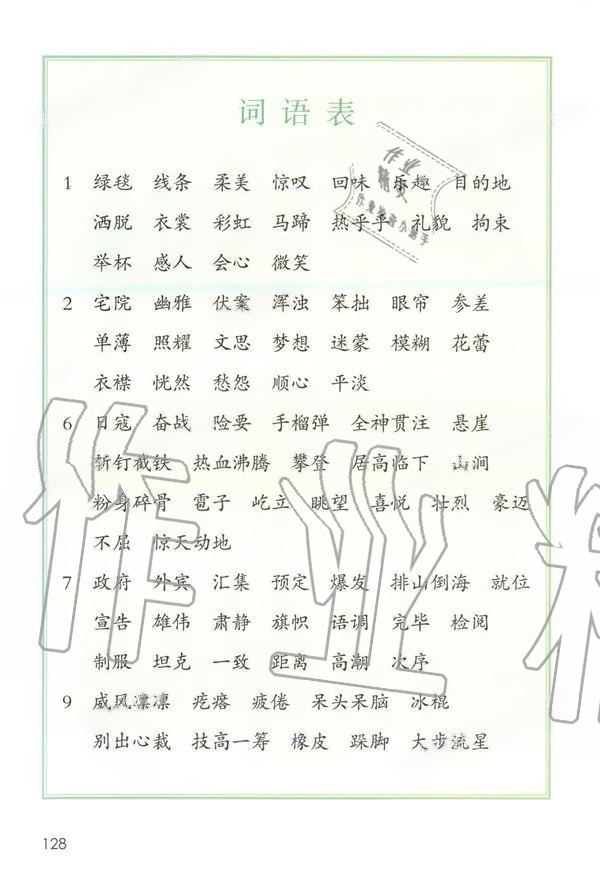 词语表
1 绿毯 线条 柔美 惊叹 回味 乐趣 目的地
洒脱 衣裳 彩虹 马蹄 热乎乎 礼貌 拘束
举杯 感人 会心 微笑
2 宅院 幽雅 伏案 浑浊 笨拙 眼帘 参差
单薄 照耀 文思 梦想 迷蒙 模糊 花蕾
衣襟 恍然 愁怨 顺心 平淡
6 日寇 奋战 险要 手榴弹 全神贯注 悬崖
斩钉截铁 热血沸腾 攀登 居高临下 山涧
粉身碎骨 雹子 屹立 眺望 喜悦 壮烈 豪迈
不屈 惊天动地
7 政府 外宾 汇集 预定 爆发 排山倒海 就位
宣告 雄伟 肃静 旗帜 语调 完毕 检阅
制服 坦克 一致 距离 高潮 次序
9 威风凛凛 疙瘩 疲倦 呆头呆脑 冰棍
别出心裁 技高一筹 橡皮 跺脚 大步流星
128
作业精灵
作业检查小助手
作业精